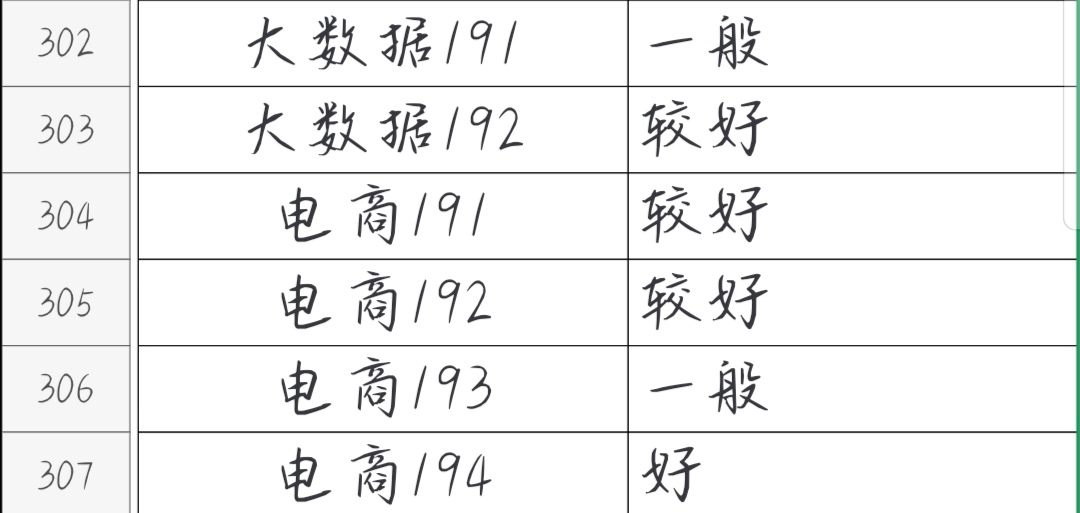 302 大数据191 一般
303 大数据192 较好
304 电商191 较好
305 电商192 较好
306 电商193 一般
307 电商194 好